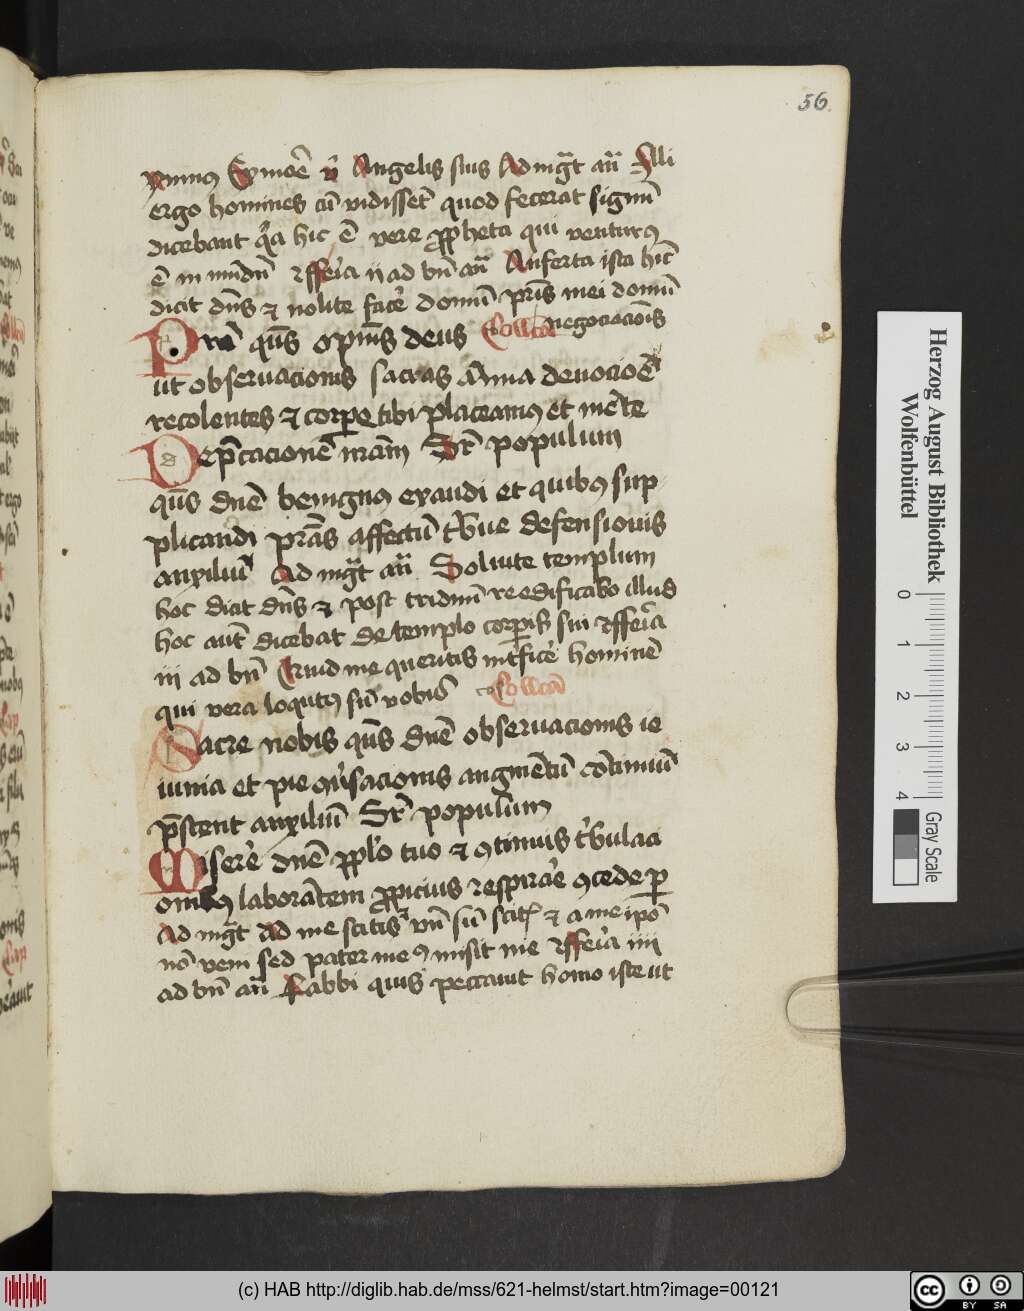 56
Angelis suis Ad mgt̄ an̄ Illi
ergo homines cū vidissēt quod fecerat signū
dicebant q̄a hic ē vere ꝓpheta qui venturꝰ
ē in mūdū ad bn̄ an̄ Auferta ista hīc
dicit dn̄s ⁊ nolite facē domū pris mei domū
negociaciōis
Pre qs̄ opms deus Collcā
ut observacionis sacras anua devociōe
recolentes ⁊ corꝑe tibi placeamꝰ et mēte
Dep̄cacionē nram Sr̄ populum
qs̄ dnē benignꝰ exaudi et quibꝰ sup
plicandi pr̄as affectū tbue defensionis
auxiliū Ad mgt̄ an̄ Soluite templum
hoc dicit dn̄s ⁊ post triduū reedificabo illud
hoc aut̄ dicebat de templo corꝑis sui
iii ad bn̄ Quid me queritis int̄ficē hominē
qui vera locutꝰ sū vobis Collcā
Sacre nobis qs̄ dnē observacionis ie
iunia et pie ꝯv̄sacionis augmētū cōtinuū
p̄stent auxiliū Sr̄ populum
Miserē dnē ꝓplo tuo ⁊ ꝯtinuis tbulaci
onibꝰ laborātem ꝓpicius respirāe ꝯcede ꝑ
Ad mgt̄ Ad me scitis ⁊ vn̄ sū scitꝭ ⁊ a me ipō
nō veni sed pater meꝰ misit me iiii
ad bn̄ an̄ Rabbi quis peccauit homo iste ut
Herzog August Bibliothek
Wolfenbüttel
0 1 2 3 4
Gray Scale
(c) HAB http://diglib.hab.de/mss/621-helmst/start.htm?image=00121
cc BY SA